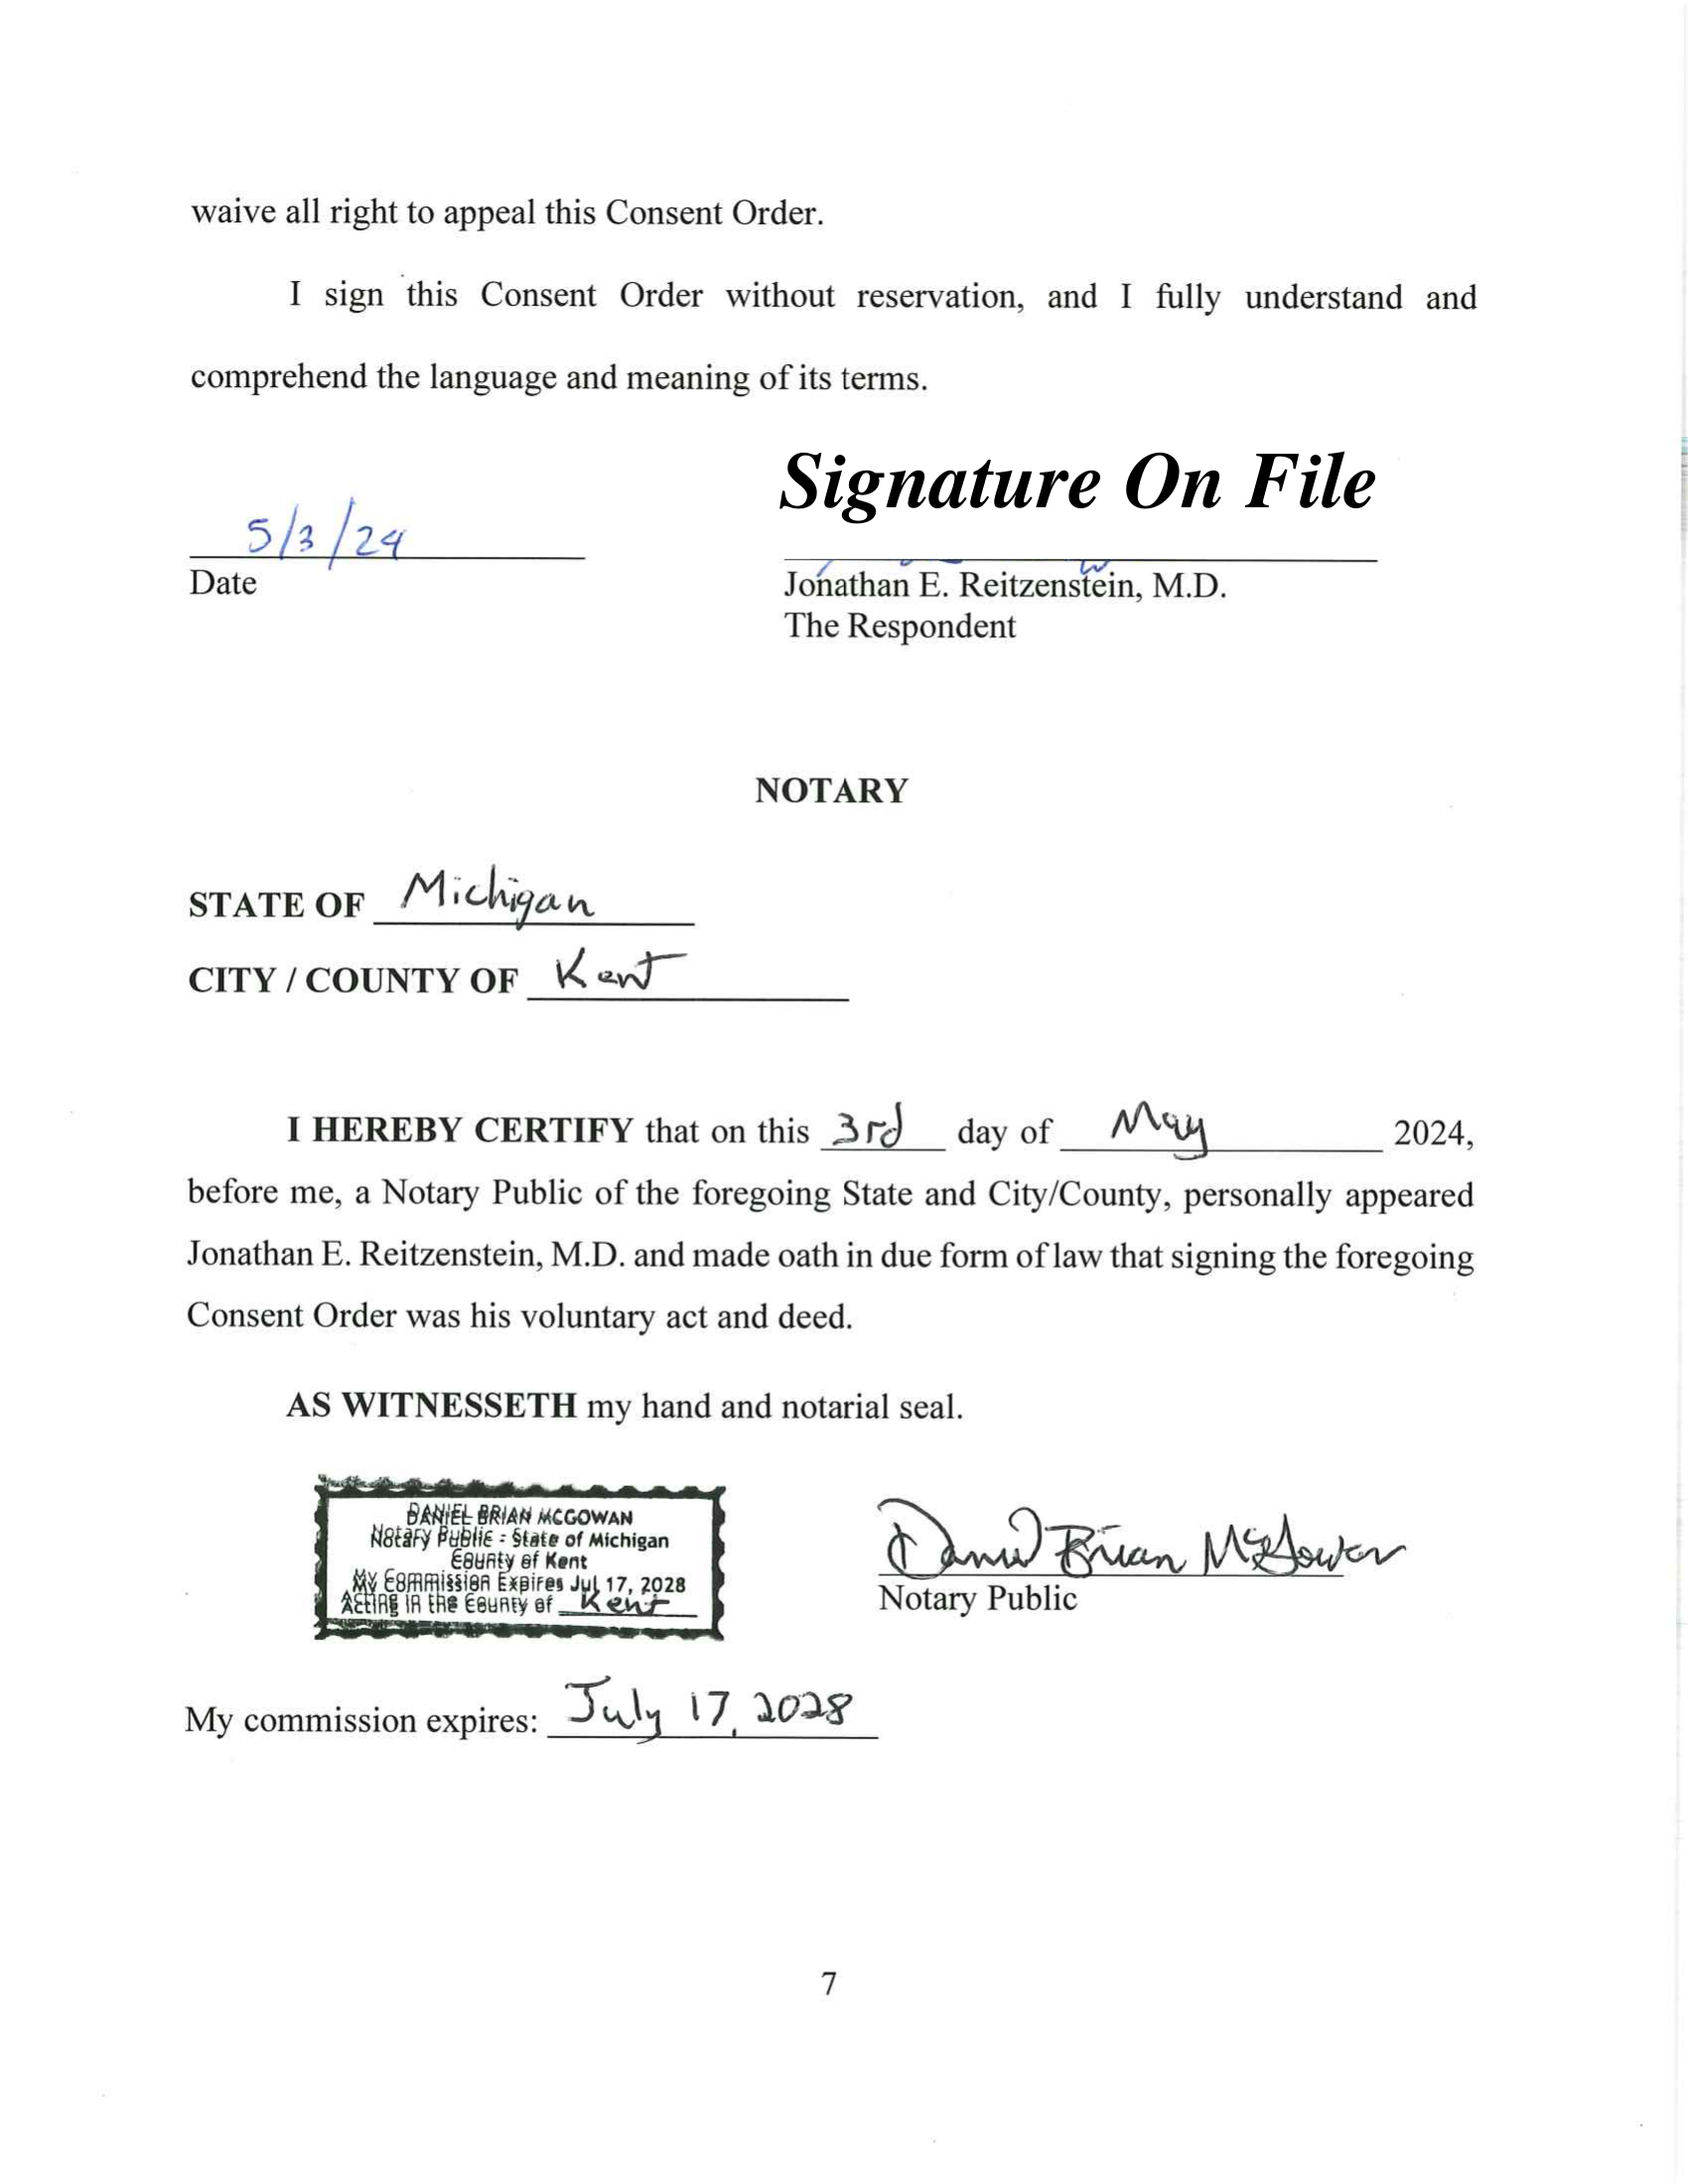 waive all right to appeal this Consent Order.
I sign this Consent Order without reservation, and I fully understand and
comprehend the language and meaning of its terms.
Signature On File
5/3/24
Date
Jonathan E. Reitzenstein, M.D.
The Respondent
NOTARY
STATE OF Michigan
CITY / COUNTY OF Kent
I HEREBY CERTIFY that on this 3rd day of May 2024,
before me, a Notary Public of the foregoing State and City/County, personally appeared
Jonathan E. Reitzenstein, M.D. and made oath in due form of law that signing the foregoing
Consent Order was his voluntary act and deed.
AS WITNESSETH my hand and notarial seal.
DANIEL BRIAN MCGOWAN
Notary Public - State of Michigan
County of Kent
My Commission Expires Jul 17, 2028
Acting in the County of Kent
Daniel Brian McGowan
Notary Public
My commission expires: July 17, 2028
7